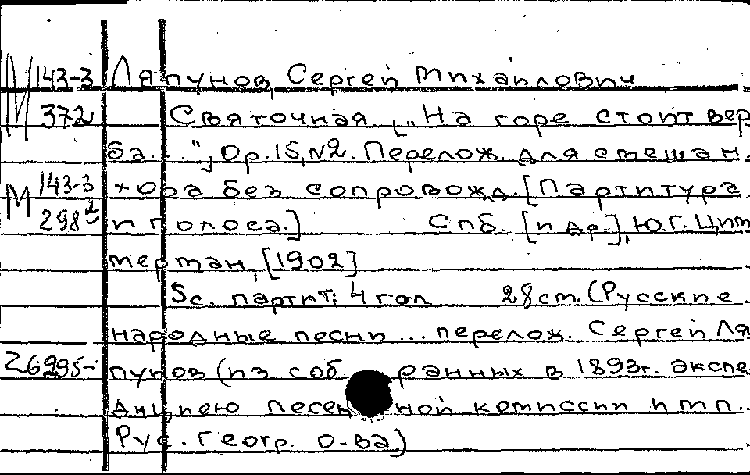 М 143-3 Ляпунов, Сергей Михайлович
372 Святочная ["На горе стоит вер
ба..."] Op.15, №2. Перелож. для смешан.
М 143-3 хора без сопровожд. [Партитура
298² и голоса.] Спб. [и др.], Ю.Г. Цим
мерман, [1902]
5с. партит; 4 гол 28cm. (Русские
народные песни... перелож. Сергей Ля
26995- пунов (из собранных в 1893г. экспе
дициею песенной комиссии имп.
Рус. Геогр. о-ва)